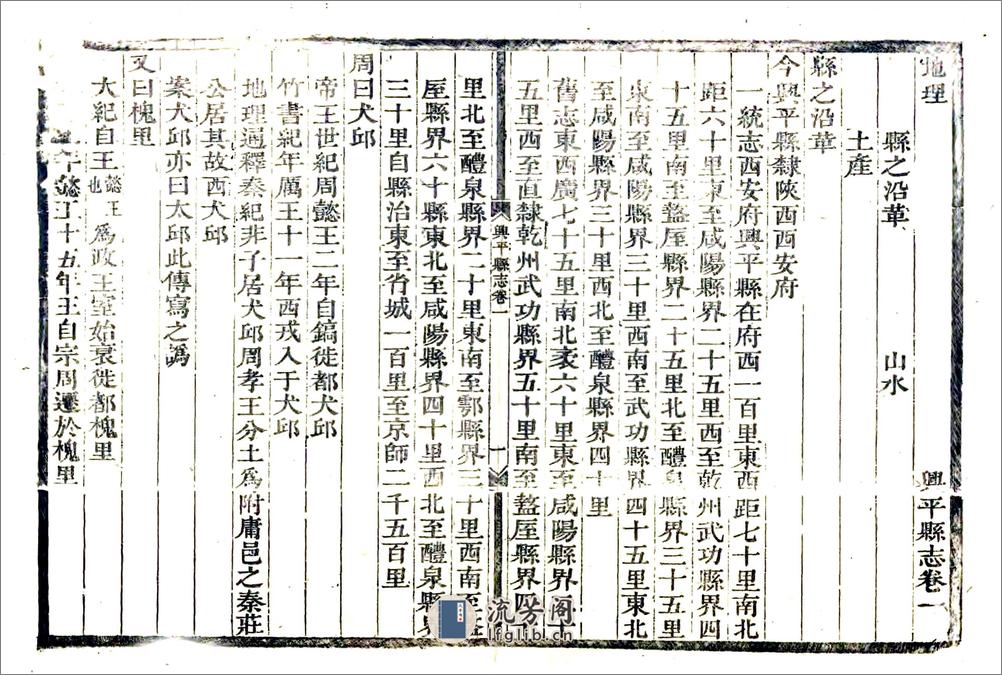 地理 興平縣志卷一
縣之沿革 山水
土產
縣之沿革
今興平縣隸陝西西安府
一統志西安府興平縣在府西一百里東西距七十里南北
距六十里東至咸陽縣界二十五里西至乾州武功縣界四
十五里南至盩厔縣界二十五里北至醴泉縣界三十五里
東南至咸陽縣界三十里西南至武功縣界四十五里東北
至咸陽縣界三十里西北至醴泉縣界四十里
舊志東西廣七十五里南北袤六十里東至咸陽縣界二十
五里西至直隸乾州武功縣界五十里南至盩厔縣界四十
興平縣志卷一 一
里北至醴泉縣界二十里東南至鄠縣界三十里西南至盩
厔縣界六十縣東北至咸陽縣界四十里西北至醴泉縣界
三十里自縣治東至省城一百里至京師二千五百里
周曰犬邱
帝王世紀周懿王二年自鎬徙都犬邱
竹書紀年厲王十一年西戎入于犬邱
地理通釋秦紀非子居犬邱周孝王分土為附庸邑之秦莊
公居其故西犬邱
案犬邱亦曰太邱此傳寫之譌
又曰槐里
大紀自王懿王也為政王室始衰徙都槐里
年懿王十五年王自宗周遷於槐里
流芳阁
lfglib.cn